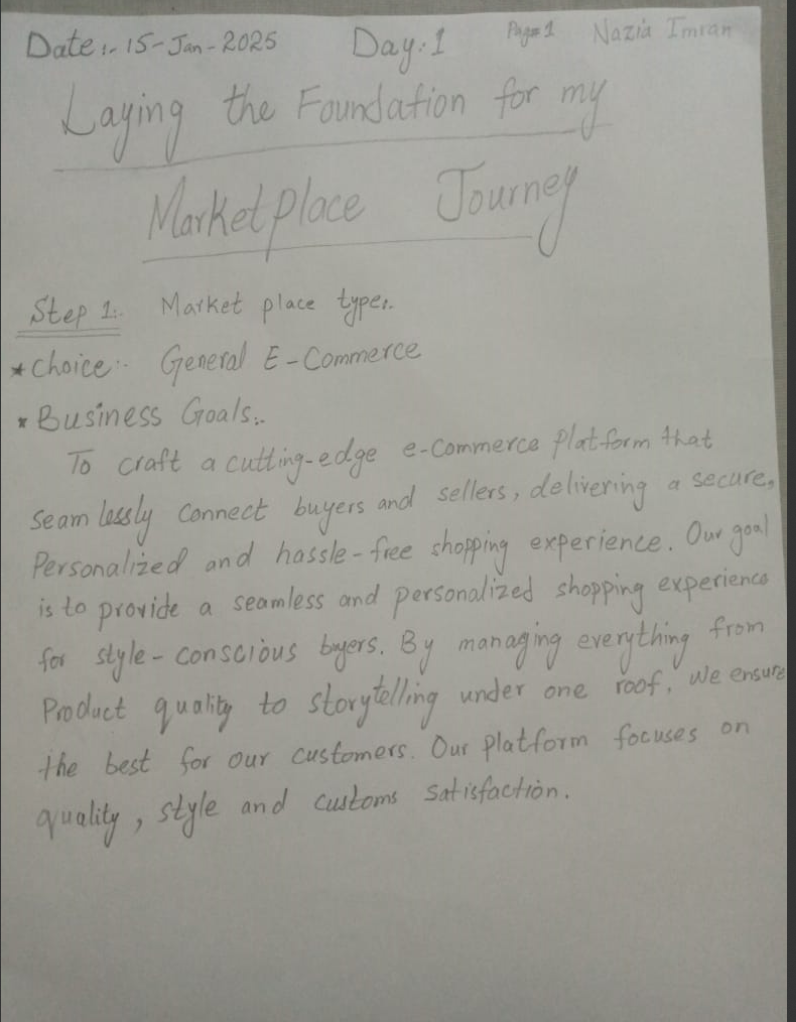 Date:- 15-Jan-2025 Day:1 Page 1 Nazia Imran
Laying the Foundation for my
Marketplace Journey
Step 1:. Market place type:.
* Choice:- General E-Commerce
* Business Goals:.
To craft a cutting-edge e-commerce platform that
seamlessly connect buyers and sellers, delivering a secure,
Personalized and hassle-free shopping experience. Our goal
is to provide a seamless and personalized shopping experience
for style-conscious byers. By managing everything from
Product quality to storytelling under one roof, we ensure
the best for our customers. Our platform focuses on
quality, style and customs satisfaction.